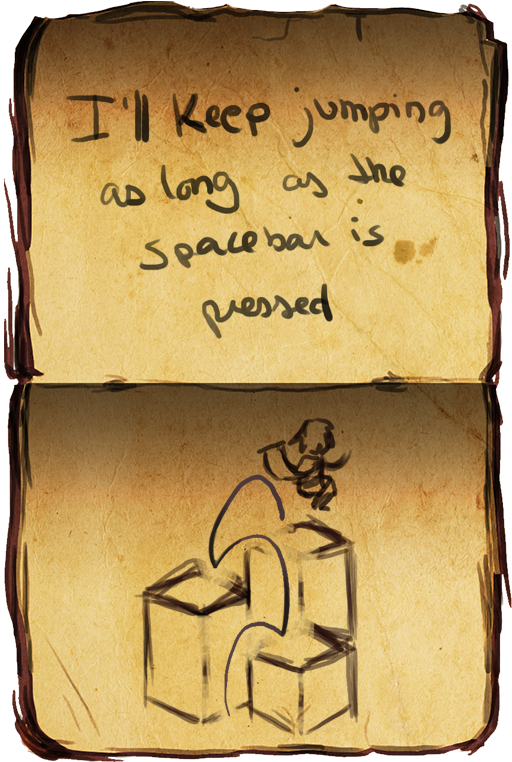 I'll keep jumping
as long as the
spacebar is
pressed